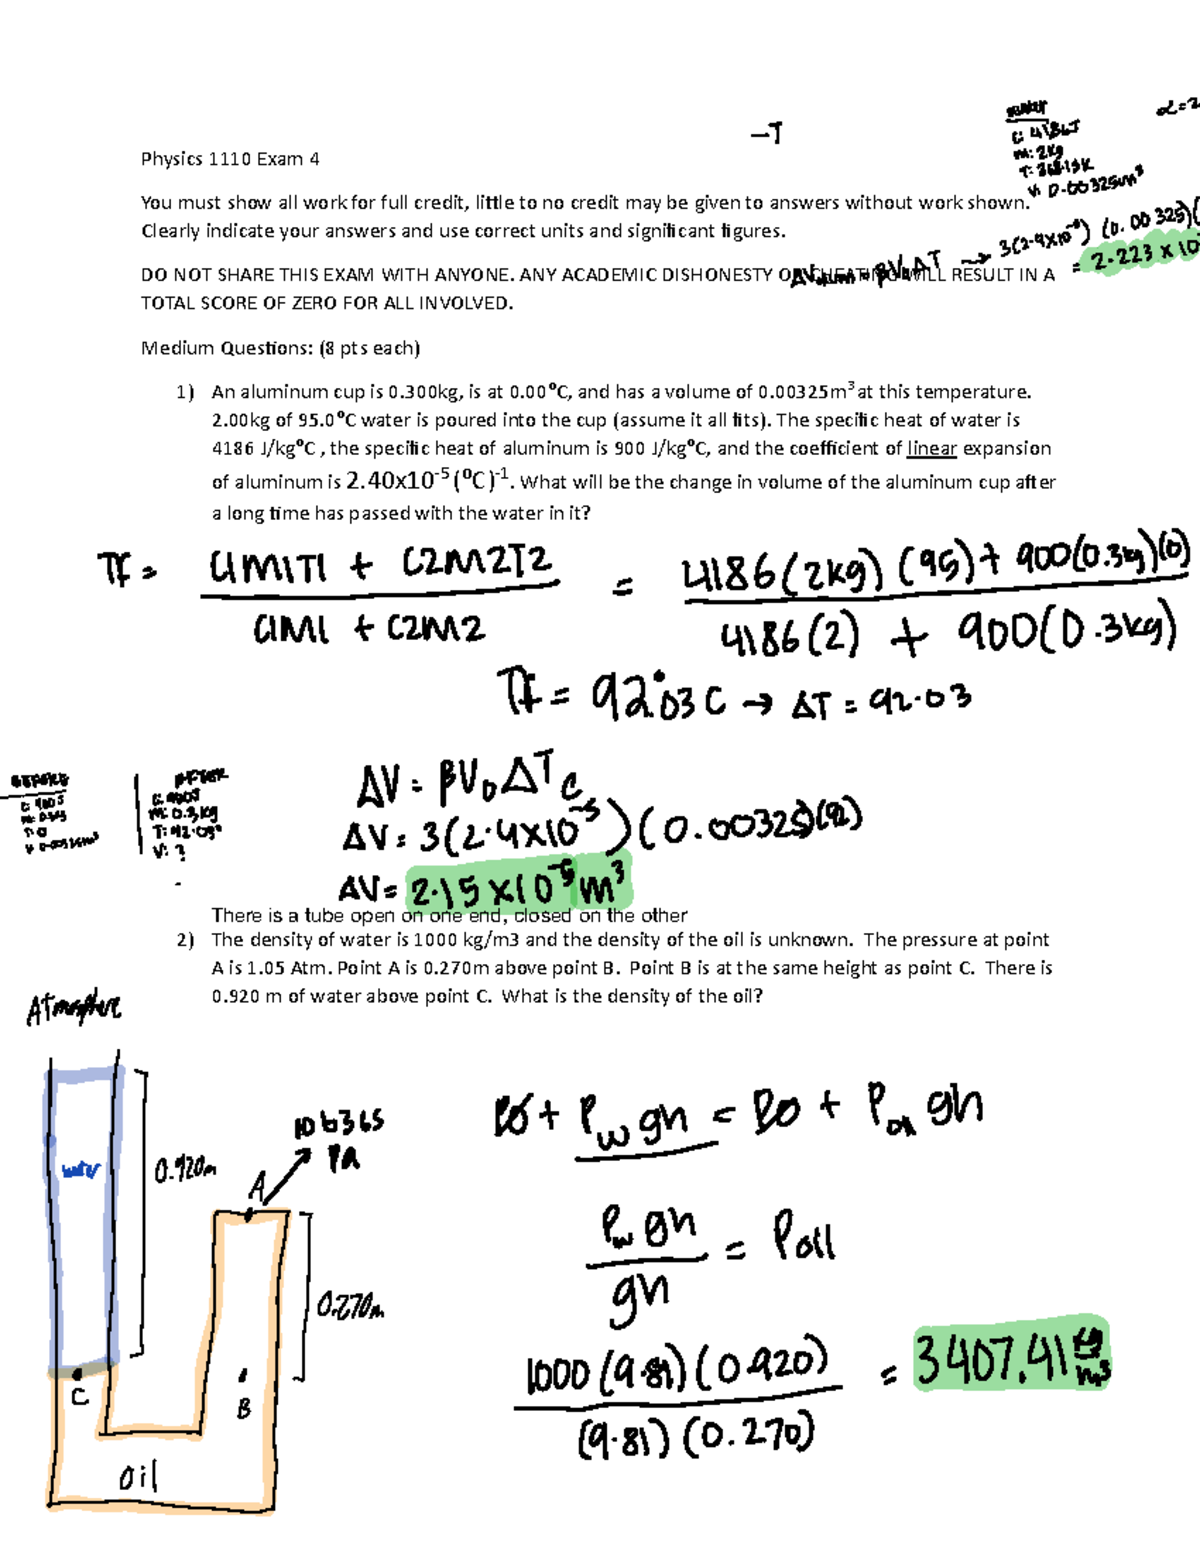 –T
C: 4186J
M: 2kg
T: 368.15K
V: 0.00325m³
α=2
Physics 1110 Exam 4
You must show all work for full credit, little to no credit may be given to answers without work shown.
Clearly indicate your answers and use correct units and significant figures.
= βV₀ΔT → 3(2.4x10⁻⁵) (0.00325)(
= 2.223 x 10
DO NOT SHARE THIS EXAM WITH ANYONE. ANY ACADEMIC DISHONESTY OR CHEATING WILL RESULT IN A
TOTAL SCORE OF ZERO FOR ALL INVOLVED.
Medium Questions: (8 pts each)
1) An aluminum cup is 0.300kg, is at 0.00⁰C, and has a volume of 0.00325m³ at this temperature.
2.00kg of 95.0⁰C water is poured into the cup (assume it all fits). The specific heat of water is
4186 J/kg⁰C , the specific heat of aluminum is 900 J/kg⁰C, and the coefficient of linear expansion
of aluminum is 2.40x10⁻⁵ (⁰C)⁻¹. What will be the change in volume of the aluminum cup after
a long time has passed with the water in it?
TF = C1M1T1 + C2M2T2 / C1M1 + C2M2 = 4186(2kg)(95)+ 900(0.3kg)(0) / 4186(2) + 900(0.3kg)
TF = 92.03°C → ΔT = 92.03
BEFORE
C: 900J
T: 0
V: 0.00325m³
AFTER
C: 900J
M: 0.3kg
T: 92.03°
V: ?
ΔV = βV₀ΔT
ΔV = 3(2.4x10⁻⁵)(0.00325)(92)
ΔV = 2.15 x10⁻⁵ m³
There is a tube open on one end, closed on the other
2) The density of water is 1000 kg/m3 and the density of the oil is unknown. The pressure at point
A is 1.05 Atm. Point A is 0.270m above point B. Point B is at the same height as point C. There is
0.920 m of water above point C. What is the density of the oil?
Atmosphere
water
0.920m
A
106365
PA
0.270m
C
B
oil
P₀ + Pw gh = P₀ + Poil gh
Pw gh / gh = Poil
1000(9.81)(0.920) / (9.81)(0.270) = 3407.41 kg/m³